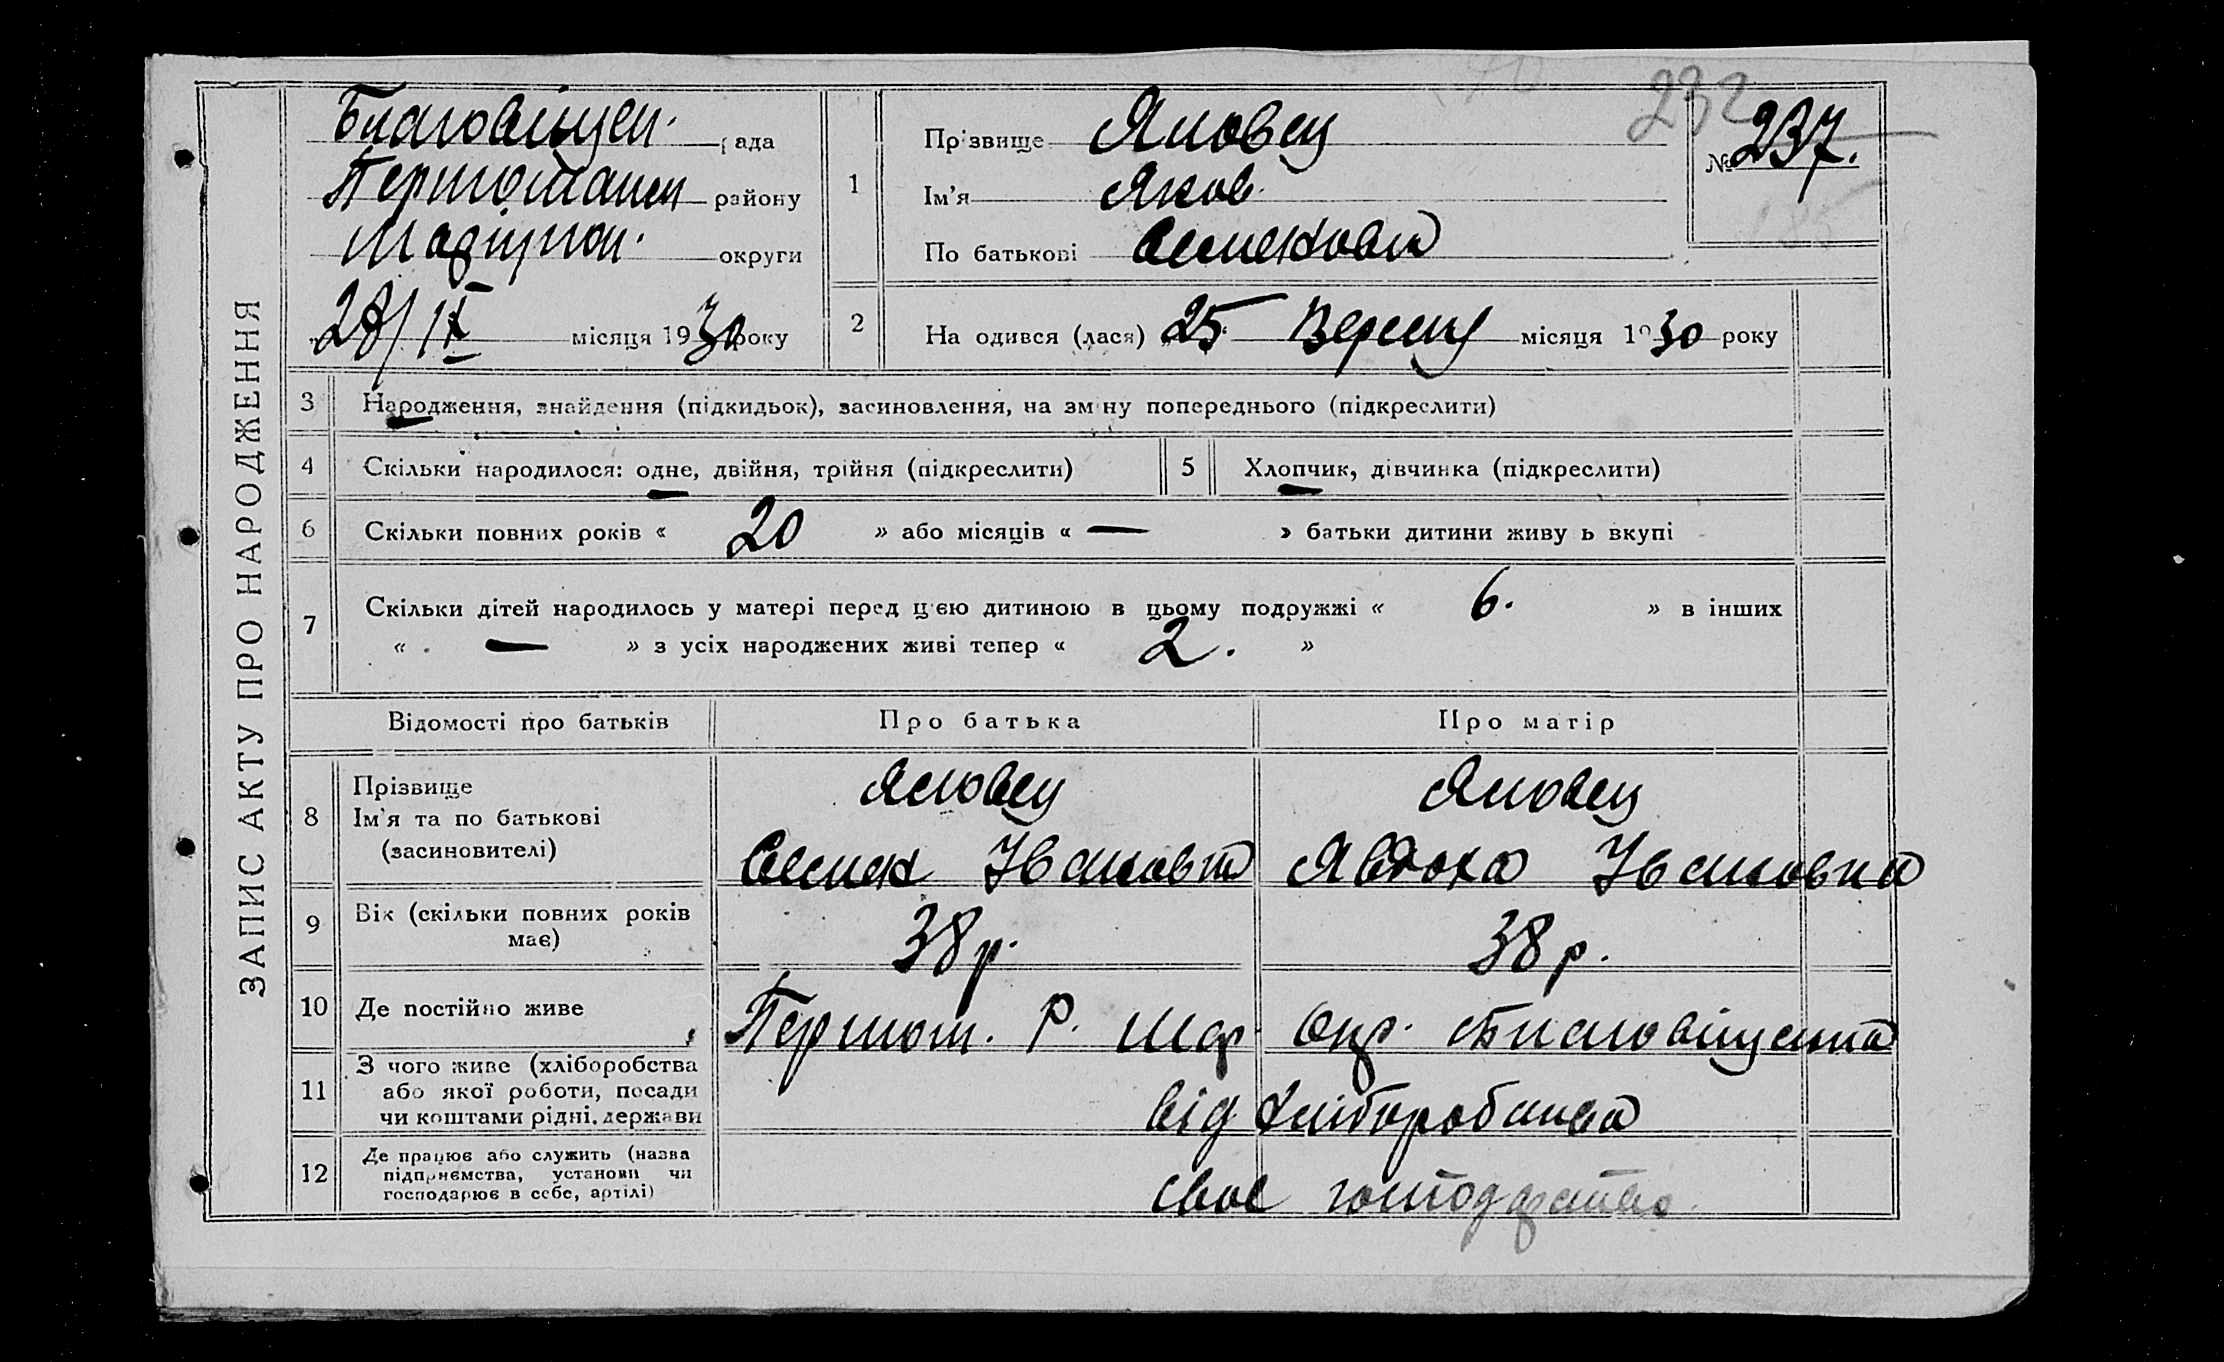 ЗАПИС АКТУ ПРО НАРОДЖЕННЯ
Благовіщен. рада
Першотавен району
Маріупол. округи
28/IX місяця 1930 року
1
Прізвище Яловец
Ім'я Яков
По батькові Семенович
232
№ 237.
2
На одився (лася) „25 Вересня місяця 1930 року
3 Народження, знайдення (підкидьок), засиновлення, на зміну попереднього (підкреслити)
4 Скільки народилося: одне, двійня, трійня (підкреслити) 5 Хлопчик, дівчинка (підкреслити)
6 Скільки повних років « 20 » або місяців « — » батьки дитини живу ь вкупі
7 Скільки дітей народилось у матері перед цією дитиною в цьому подружжі « 6. » в інших
« — » з усіх народжених живі тепер « 2. »
Відомості про батьків Про батька Про матір
8 Прізвище
Ім'я та по батькові
(засиновителі)
Яловец Яловец
Семен Іванович Явдоха Івановна
9 Вік (скільки повних років має) 38 р. 38 р.
10 Де постійно живе Першот. Р. Мар. Окр. Благовіщенка
11 З чого живе (хліборобства
або якої роботи, посади
чи коштами рідні, держави
від хліборобства
12 Де працює або служить (назва
підприємства, установи чи
господарює в себе, артілі)
своє господарство.